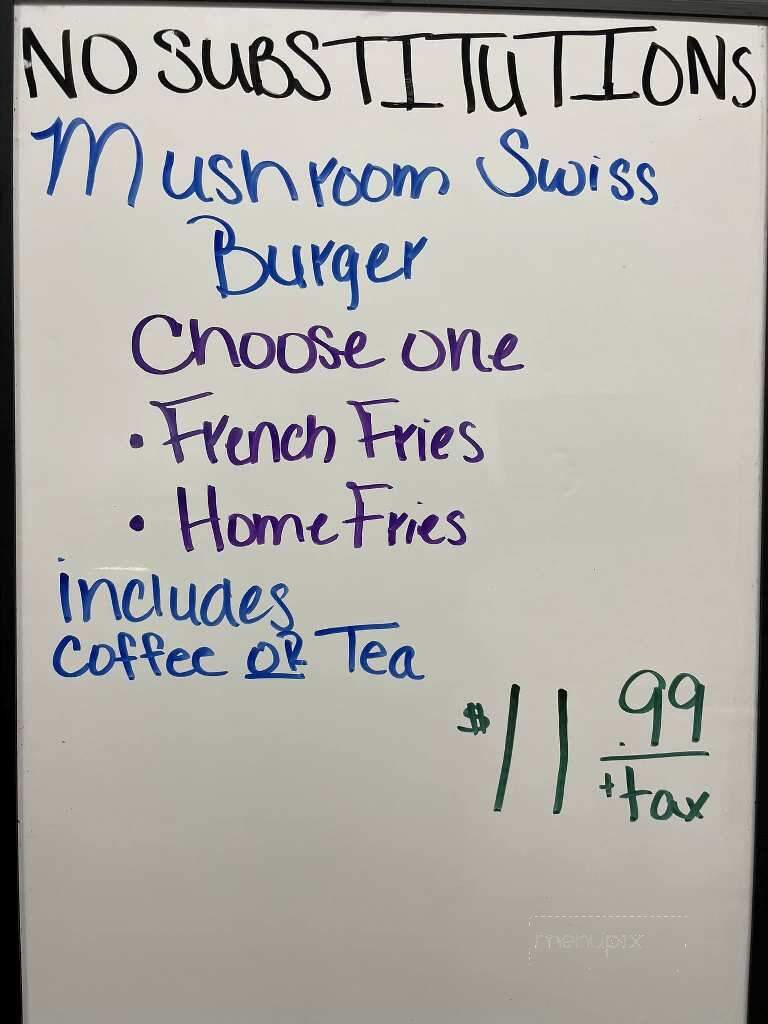 NO SUBSTITUTIONS
Mushroom Swiss
Burger
Choose one
• French Fries
• Home Fries
includes
coffee OR Tea
$11.99
+tax
menupix